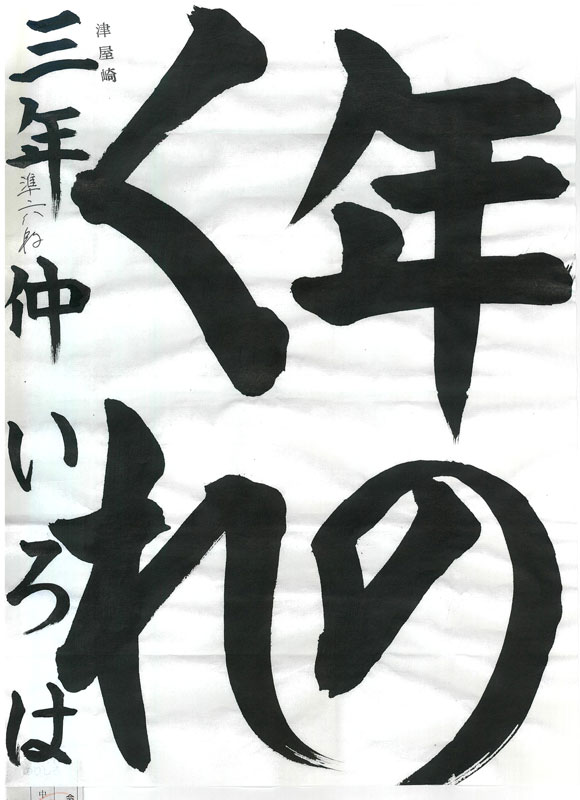 年の
くれ
津屋崎
三年仲いろは
準六段